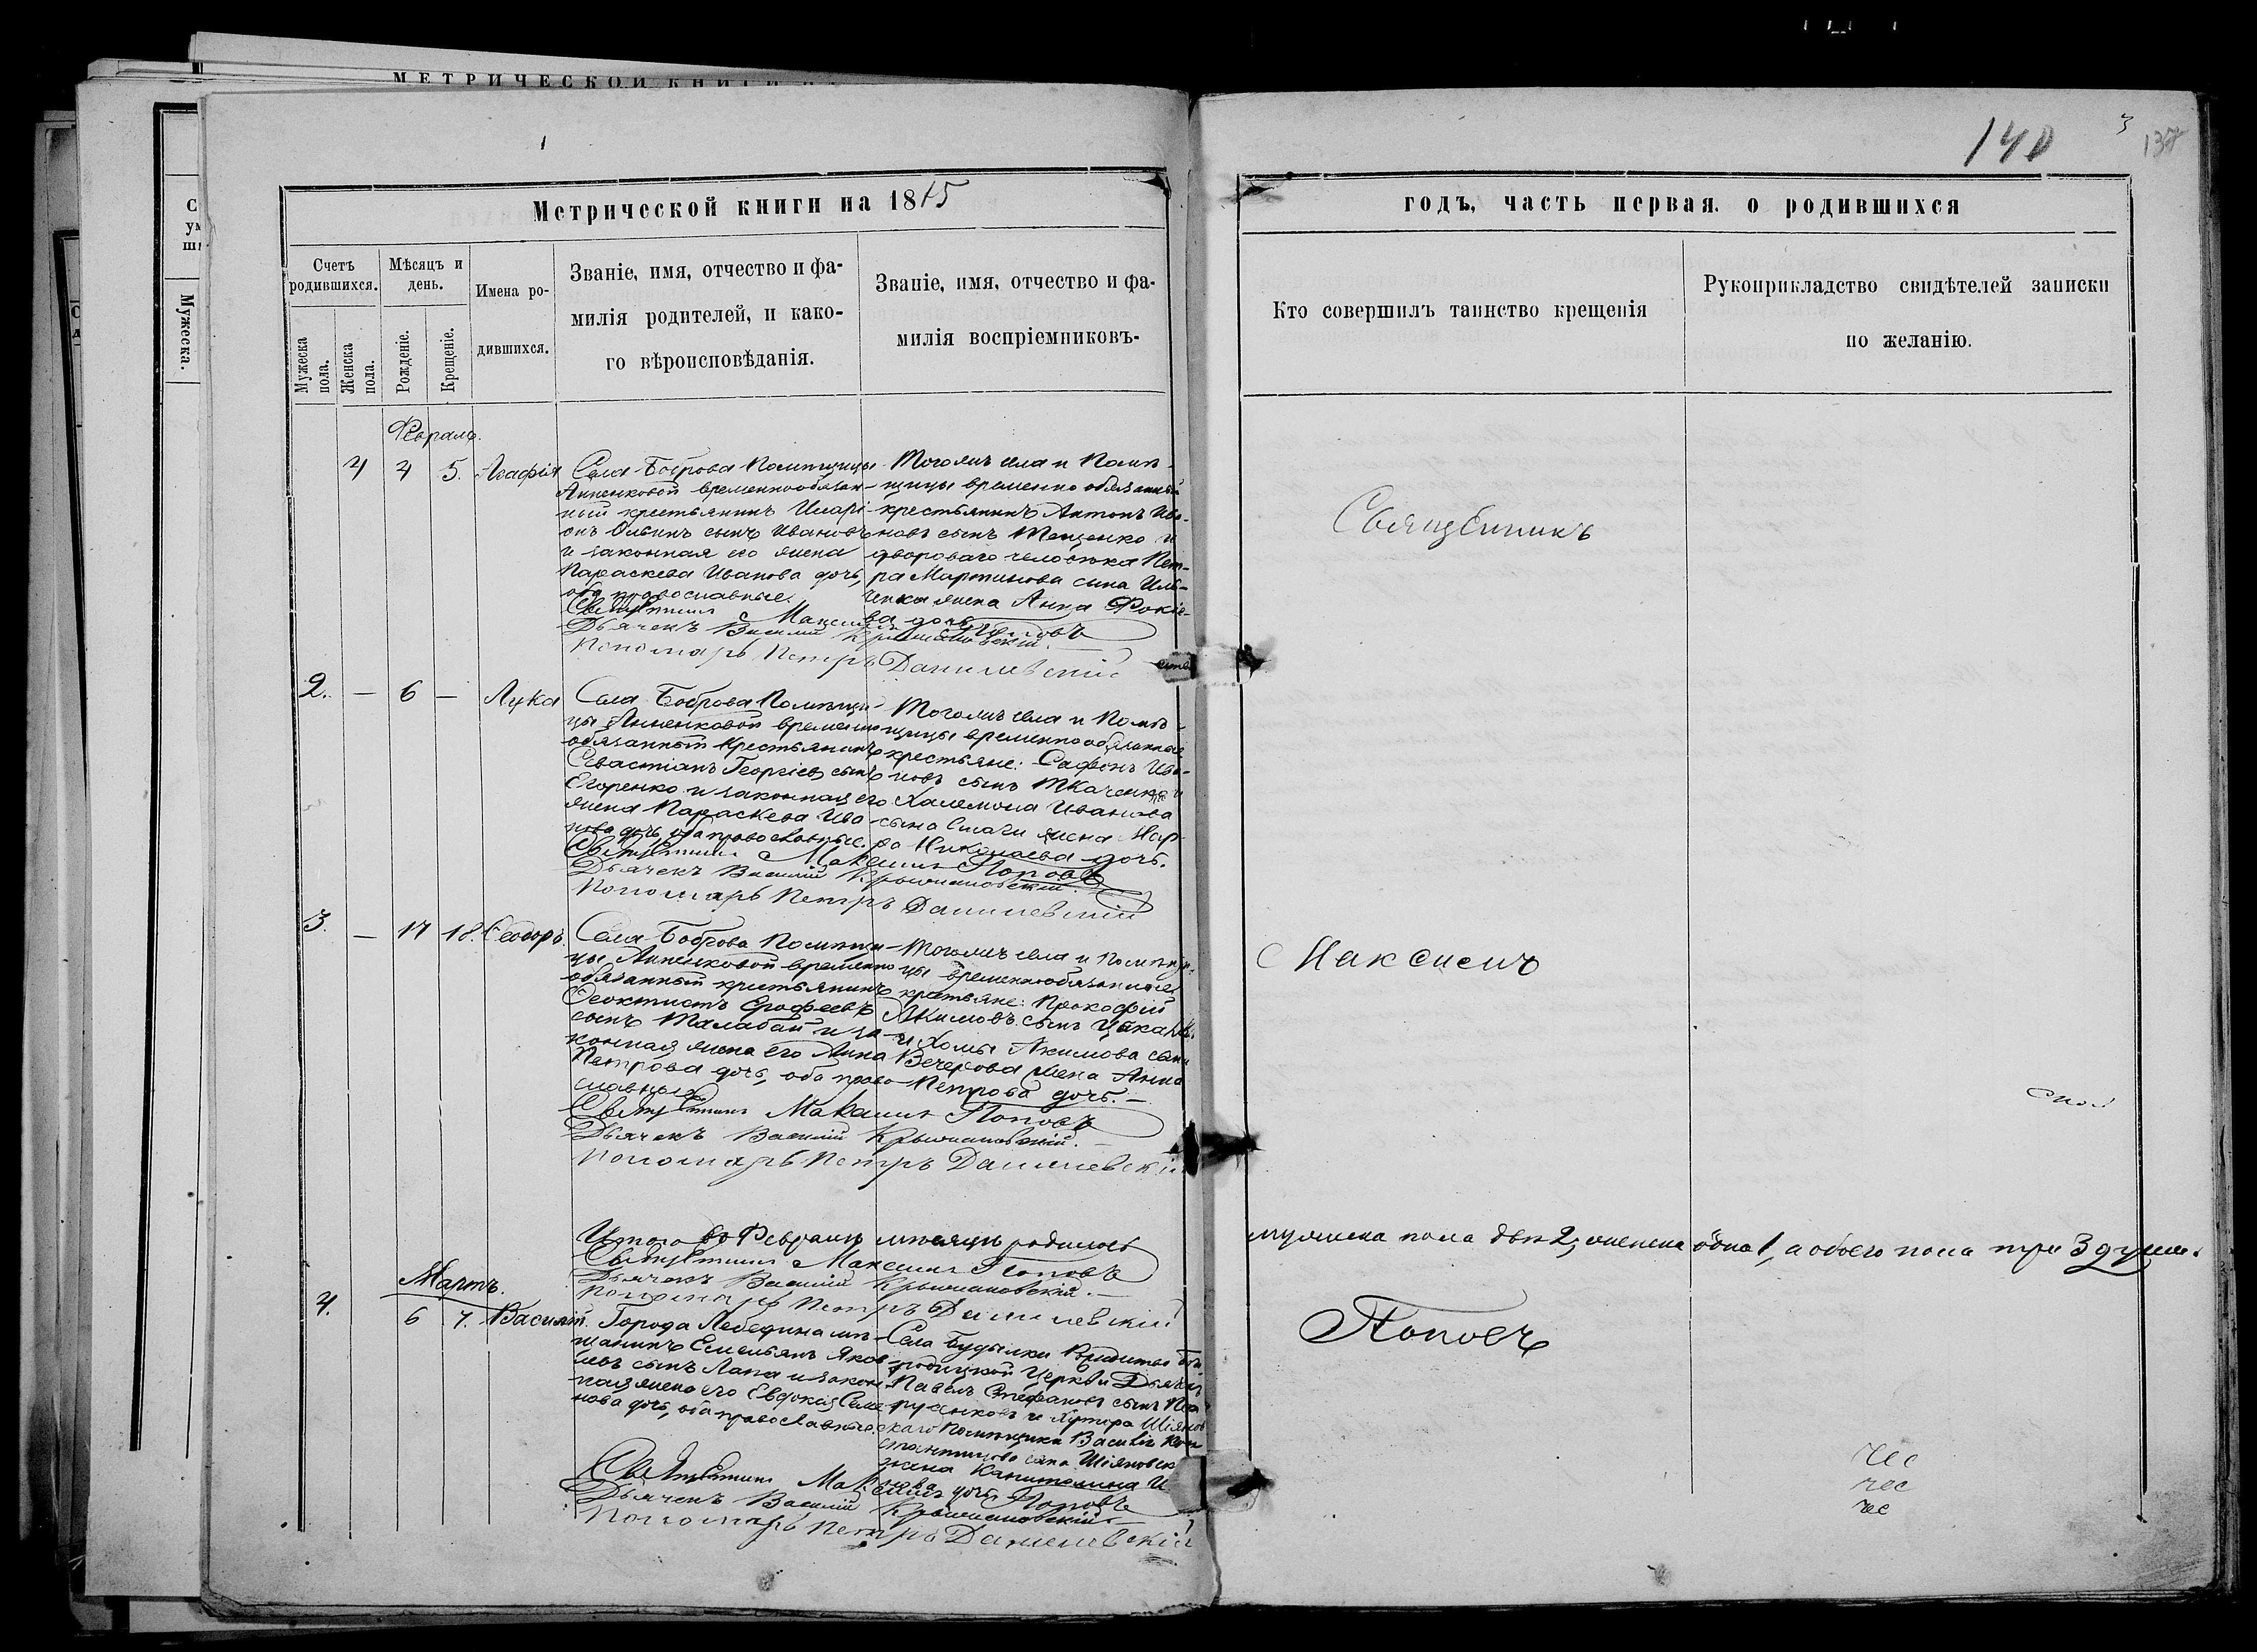 МЕТРИЧЕСКОЙ КНИГИ
1
140
3
137
Метрической книги на 1865
годъ, часть первая. о родившихся
Счетъ родившихся.
Мужеска пола.
Женска пола.
Мѣсяцъ и день.
Рожденіе.
Крещеніе.
Имена ро-
дившихся.
Званіе, имя, отчество и фа-
милія родителей, и како-
го вѣроисповѣданія.
Званіе, имя, отчество и фа-
милія воспріемниковъ-
Кто совершилъ таинство крещенія
Рукоприкладство свидѣтелей записки
по желанію.
Мужеска.
Февраль.
4 4 5. Агафія
Села Боброва Помѣщицы
Анненковой временнообязан-
ный крестьянинъ Иларі-
онъ сынъ Ивановъ
и законная его жена
Параскева Иванова дочь,
оба православные.
Тогожъ села и Помѣ-
щицы временно обязанный
крестьянинъ Антонъ Ива-
новъ сынъ Тещенко и
двороваго человѣка Пет-
ра Мартинова сына Иль-
жена Анна Фокіе-
ва дочь
Священникъ Максимъ Поповъ
Дьячекъ Василій Крыжановскій.
Пономарь Петръ Данилевскій
2. — 6 — Лука
Села Боброва Помѣщи-
цы Анненковой временно
обязанный Крестьянинъ
Севастіанъ Георгіевъ сынъ
Егоренко и законная его
жена Параскева Ива-
нова дочь, оба православные.
Тогожъ села и Помѣ-
щицы временнообязанные
крестьяне: Сафонъ Ива-
новъ сынъ Ткаченко и
Иванова
сына жена Мар-
фа Николаева дочь.
Священникъ Максимъ Поповъ
Дьячекъ Василій Крыжановскій.
Пономарь Петръ Данилевскій
3. — 17 18. Ѳеодоръ.
Села Боброва Помѣщи-
цы Анненковой временно
обязанный крестьянинъ
Ѳеоктистъ Ерофеевъ
сынъ Талабай и за-
конная жена его Анна
Петрова дочь, оба право-
славные
Тогожъ села и помѣщи-
цы временнообязанные
крестьяне: Прокофій
Акимовъ сынъ
и Хомы Акимова сына
Вечерова жена Анна
Петрова дочь.—
Священникъ Максимъ Поповъ
Дьячекъ Василій Крыжановскій.—
Пономарь Петръ Данилевскій
Итого въ Февралѣ мѣсяцѣ родилось
мужеска пола два 2, женска одна 1, а обоего пола три 3 души.
Священникъ Максимъ Поповъ
Дьячекъ Василій Крыжановскій.—
Пономарь Петръ Данилевскій
Мартъ.
4. 6 7. Василій.
Города Лебедина мѣ-
щанинъ Емельянъ Яков-
левъ сынъ Лапа и закон-
ная жена его Евдокія Семе-
нова дочь, оба православные.
Села Будылки Рождество Бо-
городицкой Церкви Дьячекъ
Павелъ Стефановъ сынъ
и Хутора Шіянов-
скаго Помѣщика Василія Кон-
стантинова сына Шіяновск
жена Капитолина И
нова дочь
Священникъ Максимъ Поповъ
Дьячекъ Василій Крыжановскій.—
Пономарь Петръ Данилевскій
Священникъ
Максимъ
Поповъ